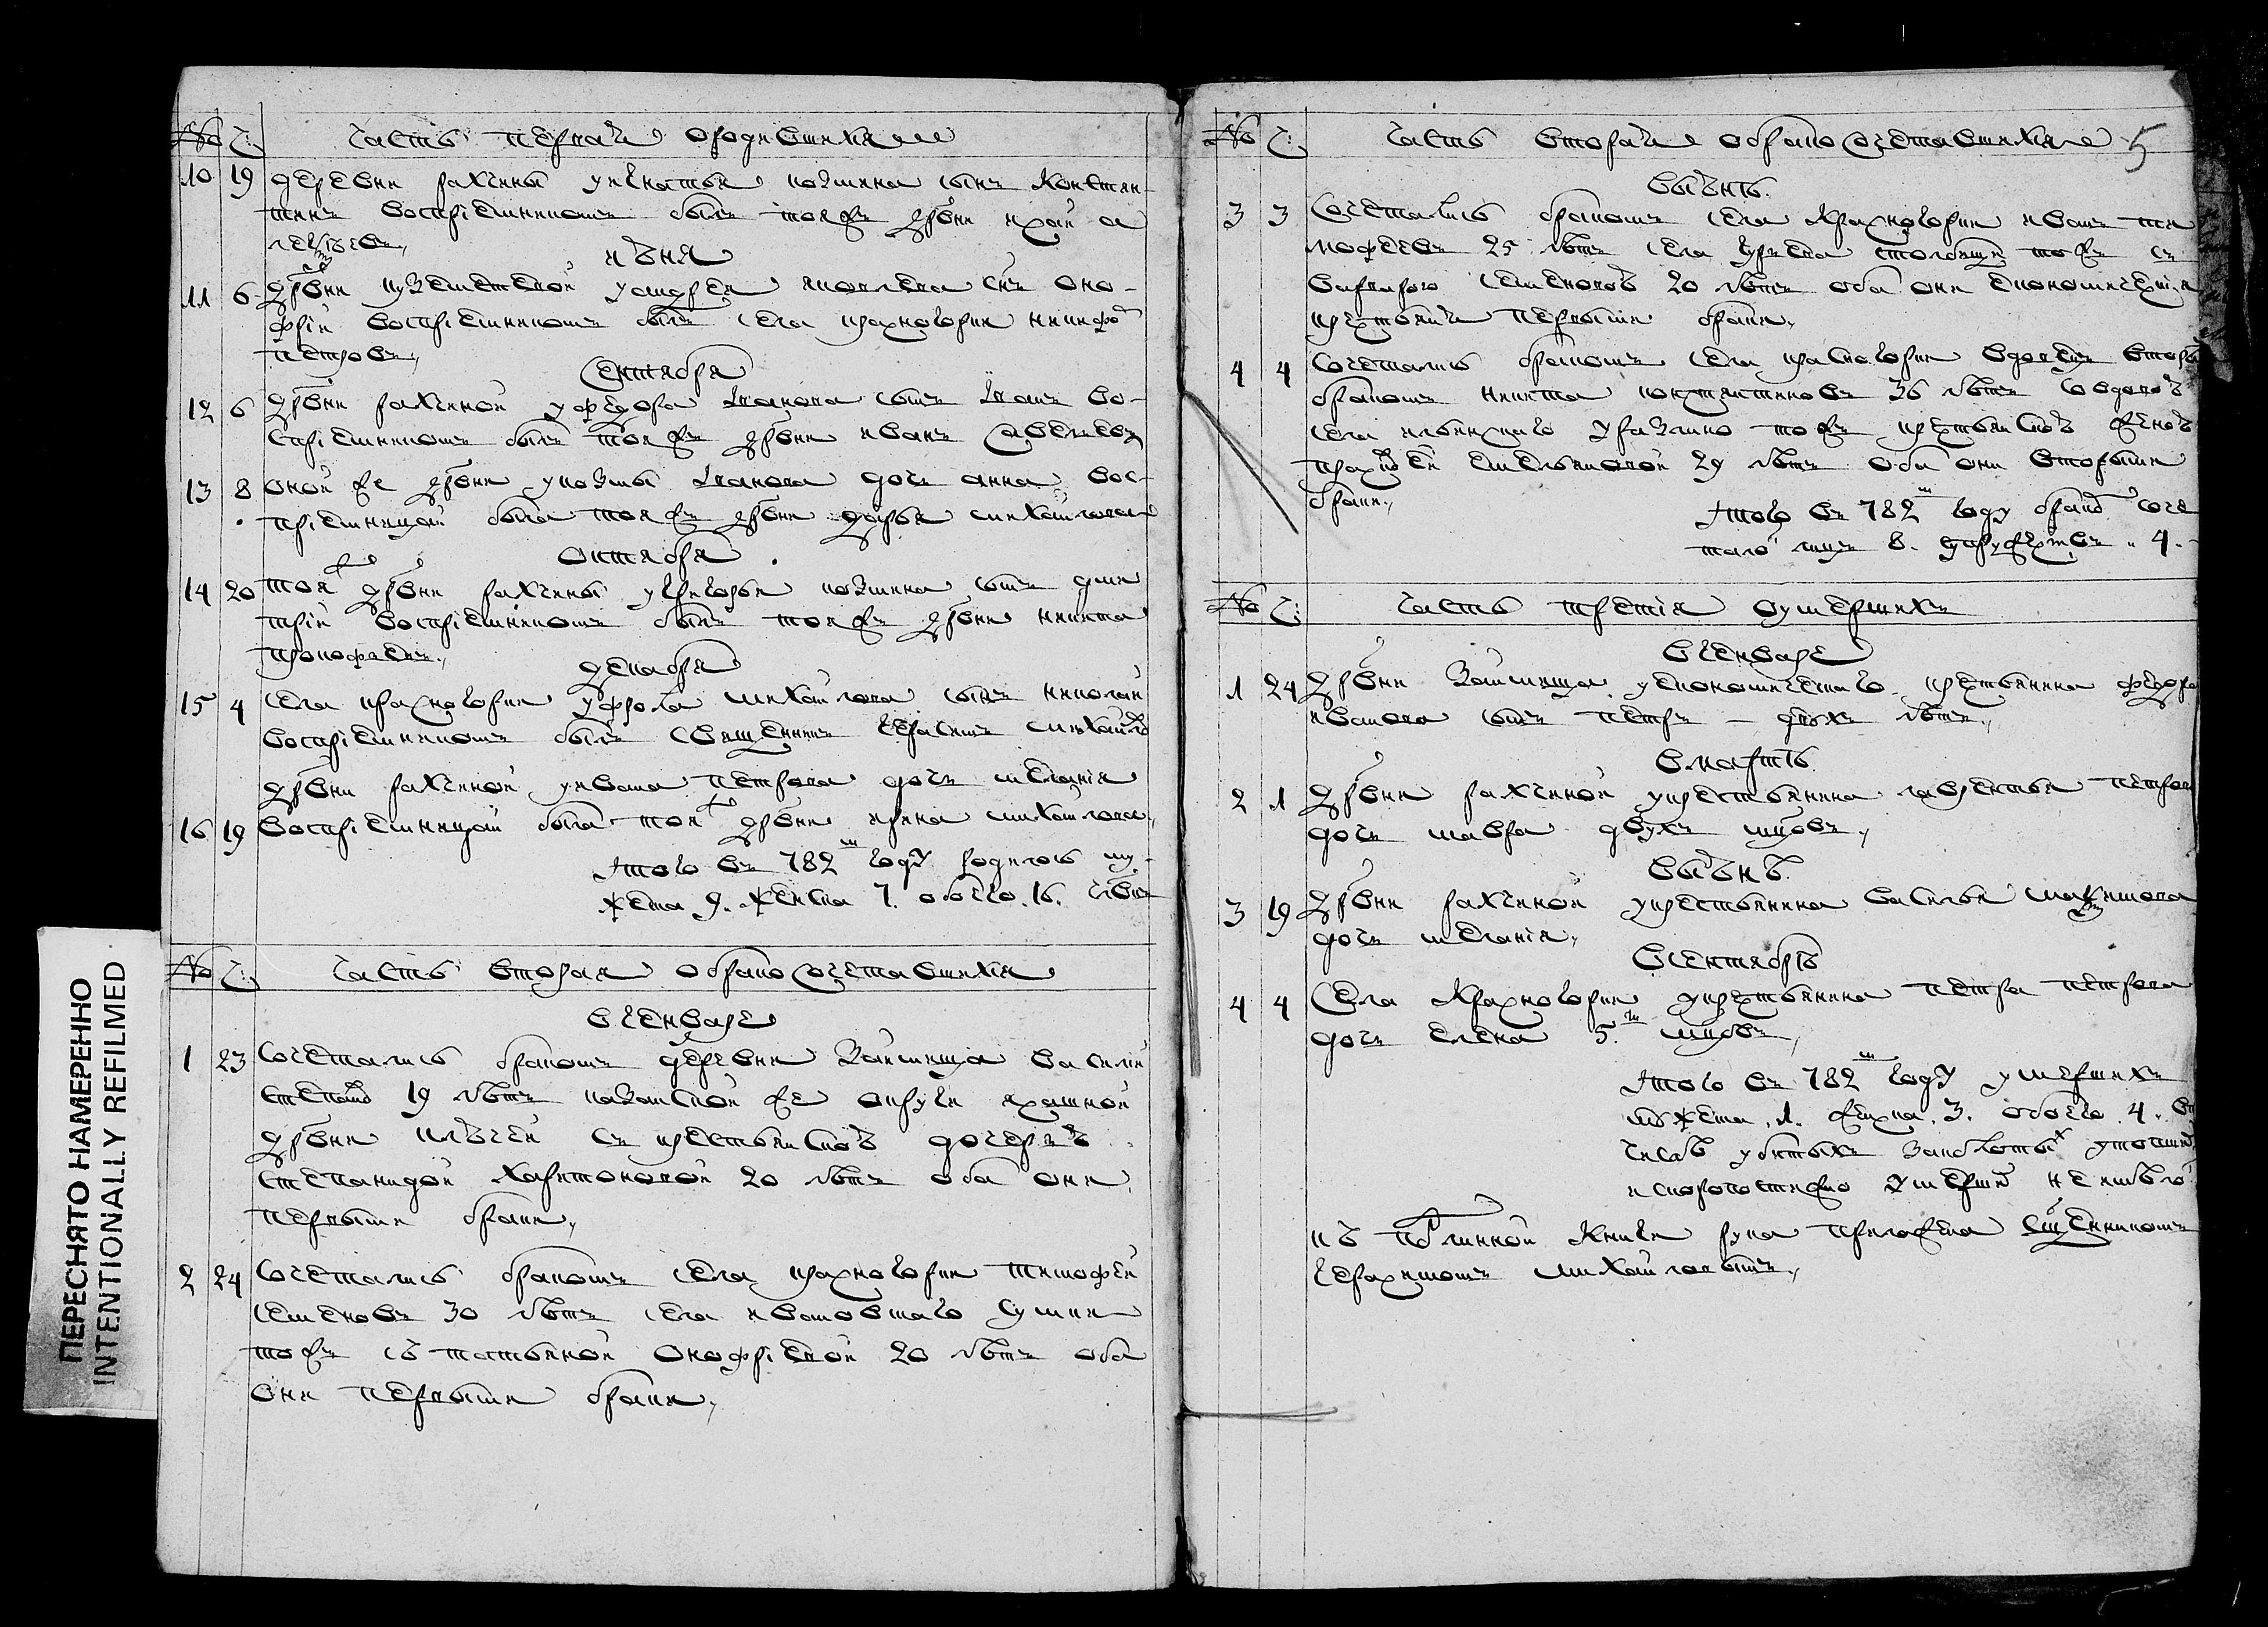 № Ч: Часть первая ородившихся
10 19 деревни рахчины уигнатья козмина сынъ Констан-
тинъ восприемникомъ былъ тояжъ дрвни исай а
лексеевъ
июня
11 6 дрвни уандрея яковлева снъ оно-
фрiи восприемникомъ былъ села красногорки никифо
петровъ
сентября
12 6 дрвни рахчиной уфедора иванова сынъ иванъ во-
сприемникомъ былъ тояжъ дрвни иванъ савельевъ
13 8 оной же дрвни укозмы иванова дочь анна вос-
приемницой была тояжъ дрвни дарья михайлова
октября
14 20 тояж дрвни рахчины угригорья козмина сынъ дми
трiи восприемникомъ былъ тояжъ дрвни никита
прокофьевъ
декабря
15 4 села красногорки уфрола михайлова сынъ николай
восприемникомъ былъ священникъ герасимъ михайло
дрвни рахчиной уивана петрова дочь меланiя
16 19 восприемницой была тояж дрвни ирина михайлова
Итого въ 782м году родилось му-
жеска 9. женска 7. обоего. 16. члвкъ
№ Ч: Часть вторая обракосочетавшихся
вгенваре
1 23 сочетались бракомъ деревни Займища василий
степано 19 летъ казанской же округи
дрвни съ крестьянскою дочерью
степанидой харитоновой 20 летъ оба они
первымъ бракъ
2 24 сочетались бракомъ села красногорки тимофей
семеновъ 30 летъ села ивановскаго сумки
тожъ съ татьяной онофрiевой 20 летъ оба
они первымъ бракъ
№ Ч: Часть вторая обракосочетавшихся 5
выюнъ
3 3 Сочетались бракомъ села Красногорки иванъ ти
мофеевъ 25 летъ села тожъ съ
варварою семеновой 20 летъ оба они економическия
крестьяня первымъ бракъ
4 4 сочетались бракомъ села красногорки вдовецъ вторы
бракомъ никита константиновъ 36 летъ совдовой
села ильинскаго тожъ крестьянской женой
емельяновой 29 летъ оба они вторымъ
бракъ
Итого въ 782м году брако соче
тало лицъ 8. супружествъ. 4.
№ Ч: Часть третiя оумершихъ
вгенваре
1 24 дрвни Займища уекономическаго крестьянина федора
иванова сынъ петръ – двухъ летъ
вмарте
2 1 дрвни рахчиной укрестьянина лаврентья петрова
дочь мавра двухъ мцовъ
выюне
3 19 дрвни рахчиной укрестьянина василья максимова
дочь меланiя
всентябре
4 4 Села Красногорки укрестьянина петра петрова
дочь елена 5.ти мцовъ
Итого въ 782м году умершихъ
мужеска. 1. женска. 3. обоего. 4. в
числе убитыхъ
искоропостижно умерши неимелос
къ подлинной книге рука приложена сщенникомъ
герасимомъ михайловымъ
ПЕРЕСНЯТО НАМЕРЕННО
INTENTIONALLY REFILMED